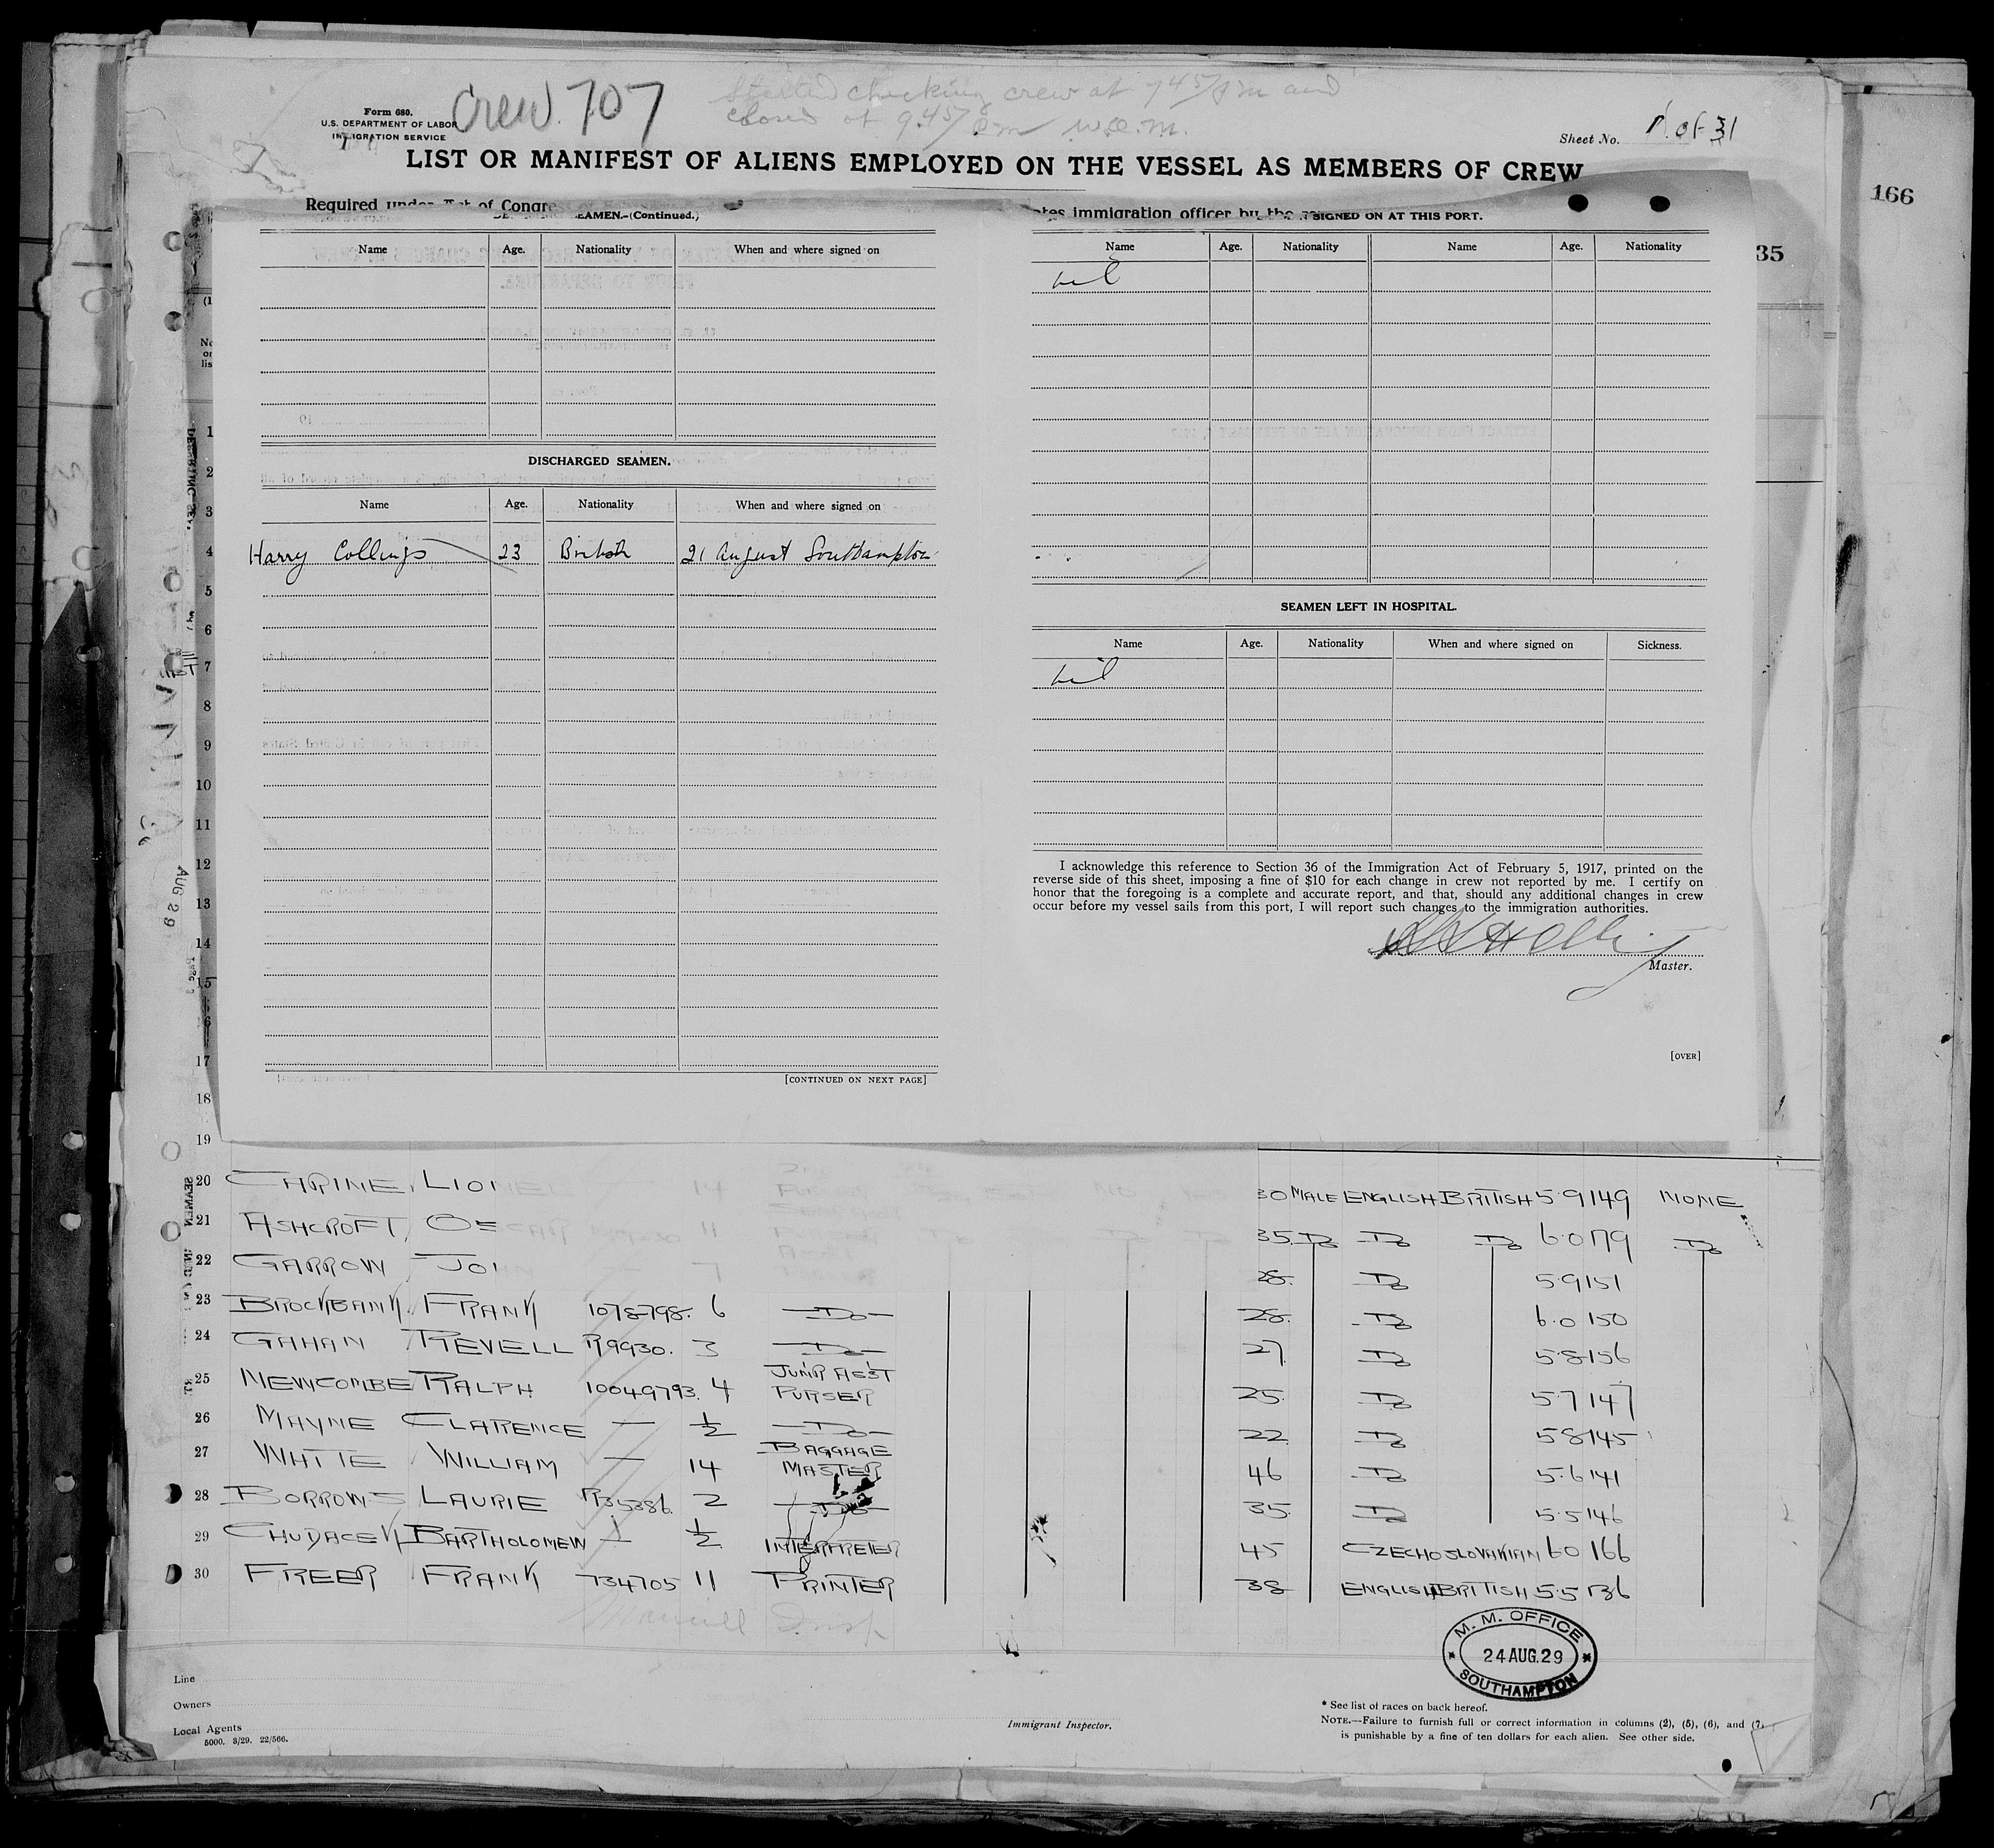 Form 680.
U.S. DEPARTMENT OF LABOR
IMMIGRATION SERVICE
Crew 707
Started checking crew at 7 45/ P m and
closed at 9.45/ P m
Sheet No. 1 of 31
LIST OR MANIFEST OF ALIENS EMPLOYED ON THE VESSEL AS MEMBERS OF CREW
166
Required under Act of Congress
tes immigration officer by the
35
EAMEN.-(Continued.)
SIGNED ON AT THIS PORT.
Name Age. Nationality When and where signed on
Name Age. Nationality Name Age. Nationality
nil
DISCHARGED SEAMEN.
Name Age. Nationality When and where signed on
Harry Collings 23 British 21 August Southampton
SEAMEN LEFT IN HOSPITAL.
Name Age. Nationality When and where signed on Sickness.
nil
I acknowledge this reference to Section 36 of the Immigration Act of February 5, 1917, printed on the
reverse side of this sheet, imposing a fine of $10 for each change in crew not reported by me. I certify on
honor that the foregoing is a complete and accurate report, and that, should any additional changes in crew
occur before my vessel sails from this port, I will report such changes to the immigration authorities.
Master.
[OVER]
[CONTINUED ON NEXT PAGE]
No
on
lis
1
2
3
4
5
6
7
8
9
10
11
12
13
14
15
16
17
18
19
AUG 29
20 CARINE, LIONEL 14 30 MALE ENGLISH BRITISH 5·9 149 NONE
21 ASHCROFT, OSCAR 11 35. Do Do Do 6·0 179 Do
22 GARROW JOHN 7 28. Do 5·9 151
23 BROCKBANK. FRANK 1078798. 6 —Do— 28. Do 6·0 150
24 GAHAN REVELL R9930. 3 —Do— 27. Do 5·8 156
25 NEWCOMBE RALPH 10049793. 4 JUN'R ASS'T PURSER 25. Do 5·7 147
26 MAYNE CLARENCE — ½ —Do— 22. Do 5·8 145
27 WHITE WILLIAM — 14 BAGGAGE MASTER 46 Do 5·6 141
28 BORROWS LAURIE R35386. 2 —Do— 35. Do 5·5 146
29 CHUDACEK BARTHOLOMEW — ½ INTERPRETER 45 CZECHOSLOVAKIAN 6·0 166
30 FREER FRANK 734705 11 PRINTER 38 ENGLISH BRITISH 5·5 136
M. M. OFFICE
24 AUG. 29
SOUTHAMPTON
Line
Owners
Local Agents
5000. 3/29. 22/566.
Immigrant Inspector.
* See list of races on back hereof.
NOTE.—Failure to furnish full or correct information in columns (2), (5), (6), and (7)
is punishable by a fine of ten dollars for each alien. See other side.